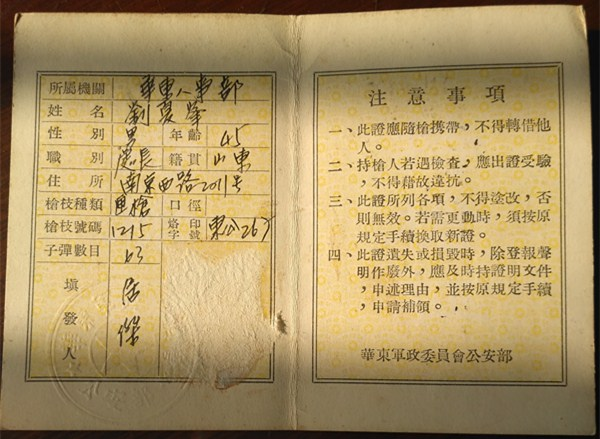 所屬機關 華東人事部
姓名 劉夏峰
性別 男 年齡 45
職別 處長 籍貫 山東
住所 南京西路2011号
槍枝種類 槍 口徑
槍枝號碼 1215 烙印字號 東公
子彈數目 63
填發人 傑
注意事項
一、此證應隨槍携帶，不得轉借他
人。
二、持槍人若遇檢查，應出證受驗
，不得藉故違抗。
三、此證所列各項，不得塗改，否
則無效。若需更動時，須按原
規定手續換取新證。
四、此證遺失或損毀時，除登報聲
明作廢外，應及時持證明文件
，申述理由，並按原規定手續
，申請補領。
華東軍政委員會公安部